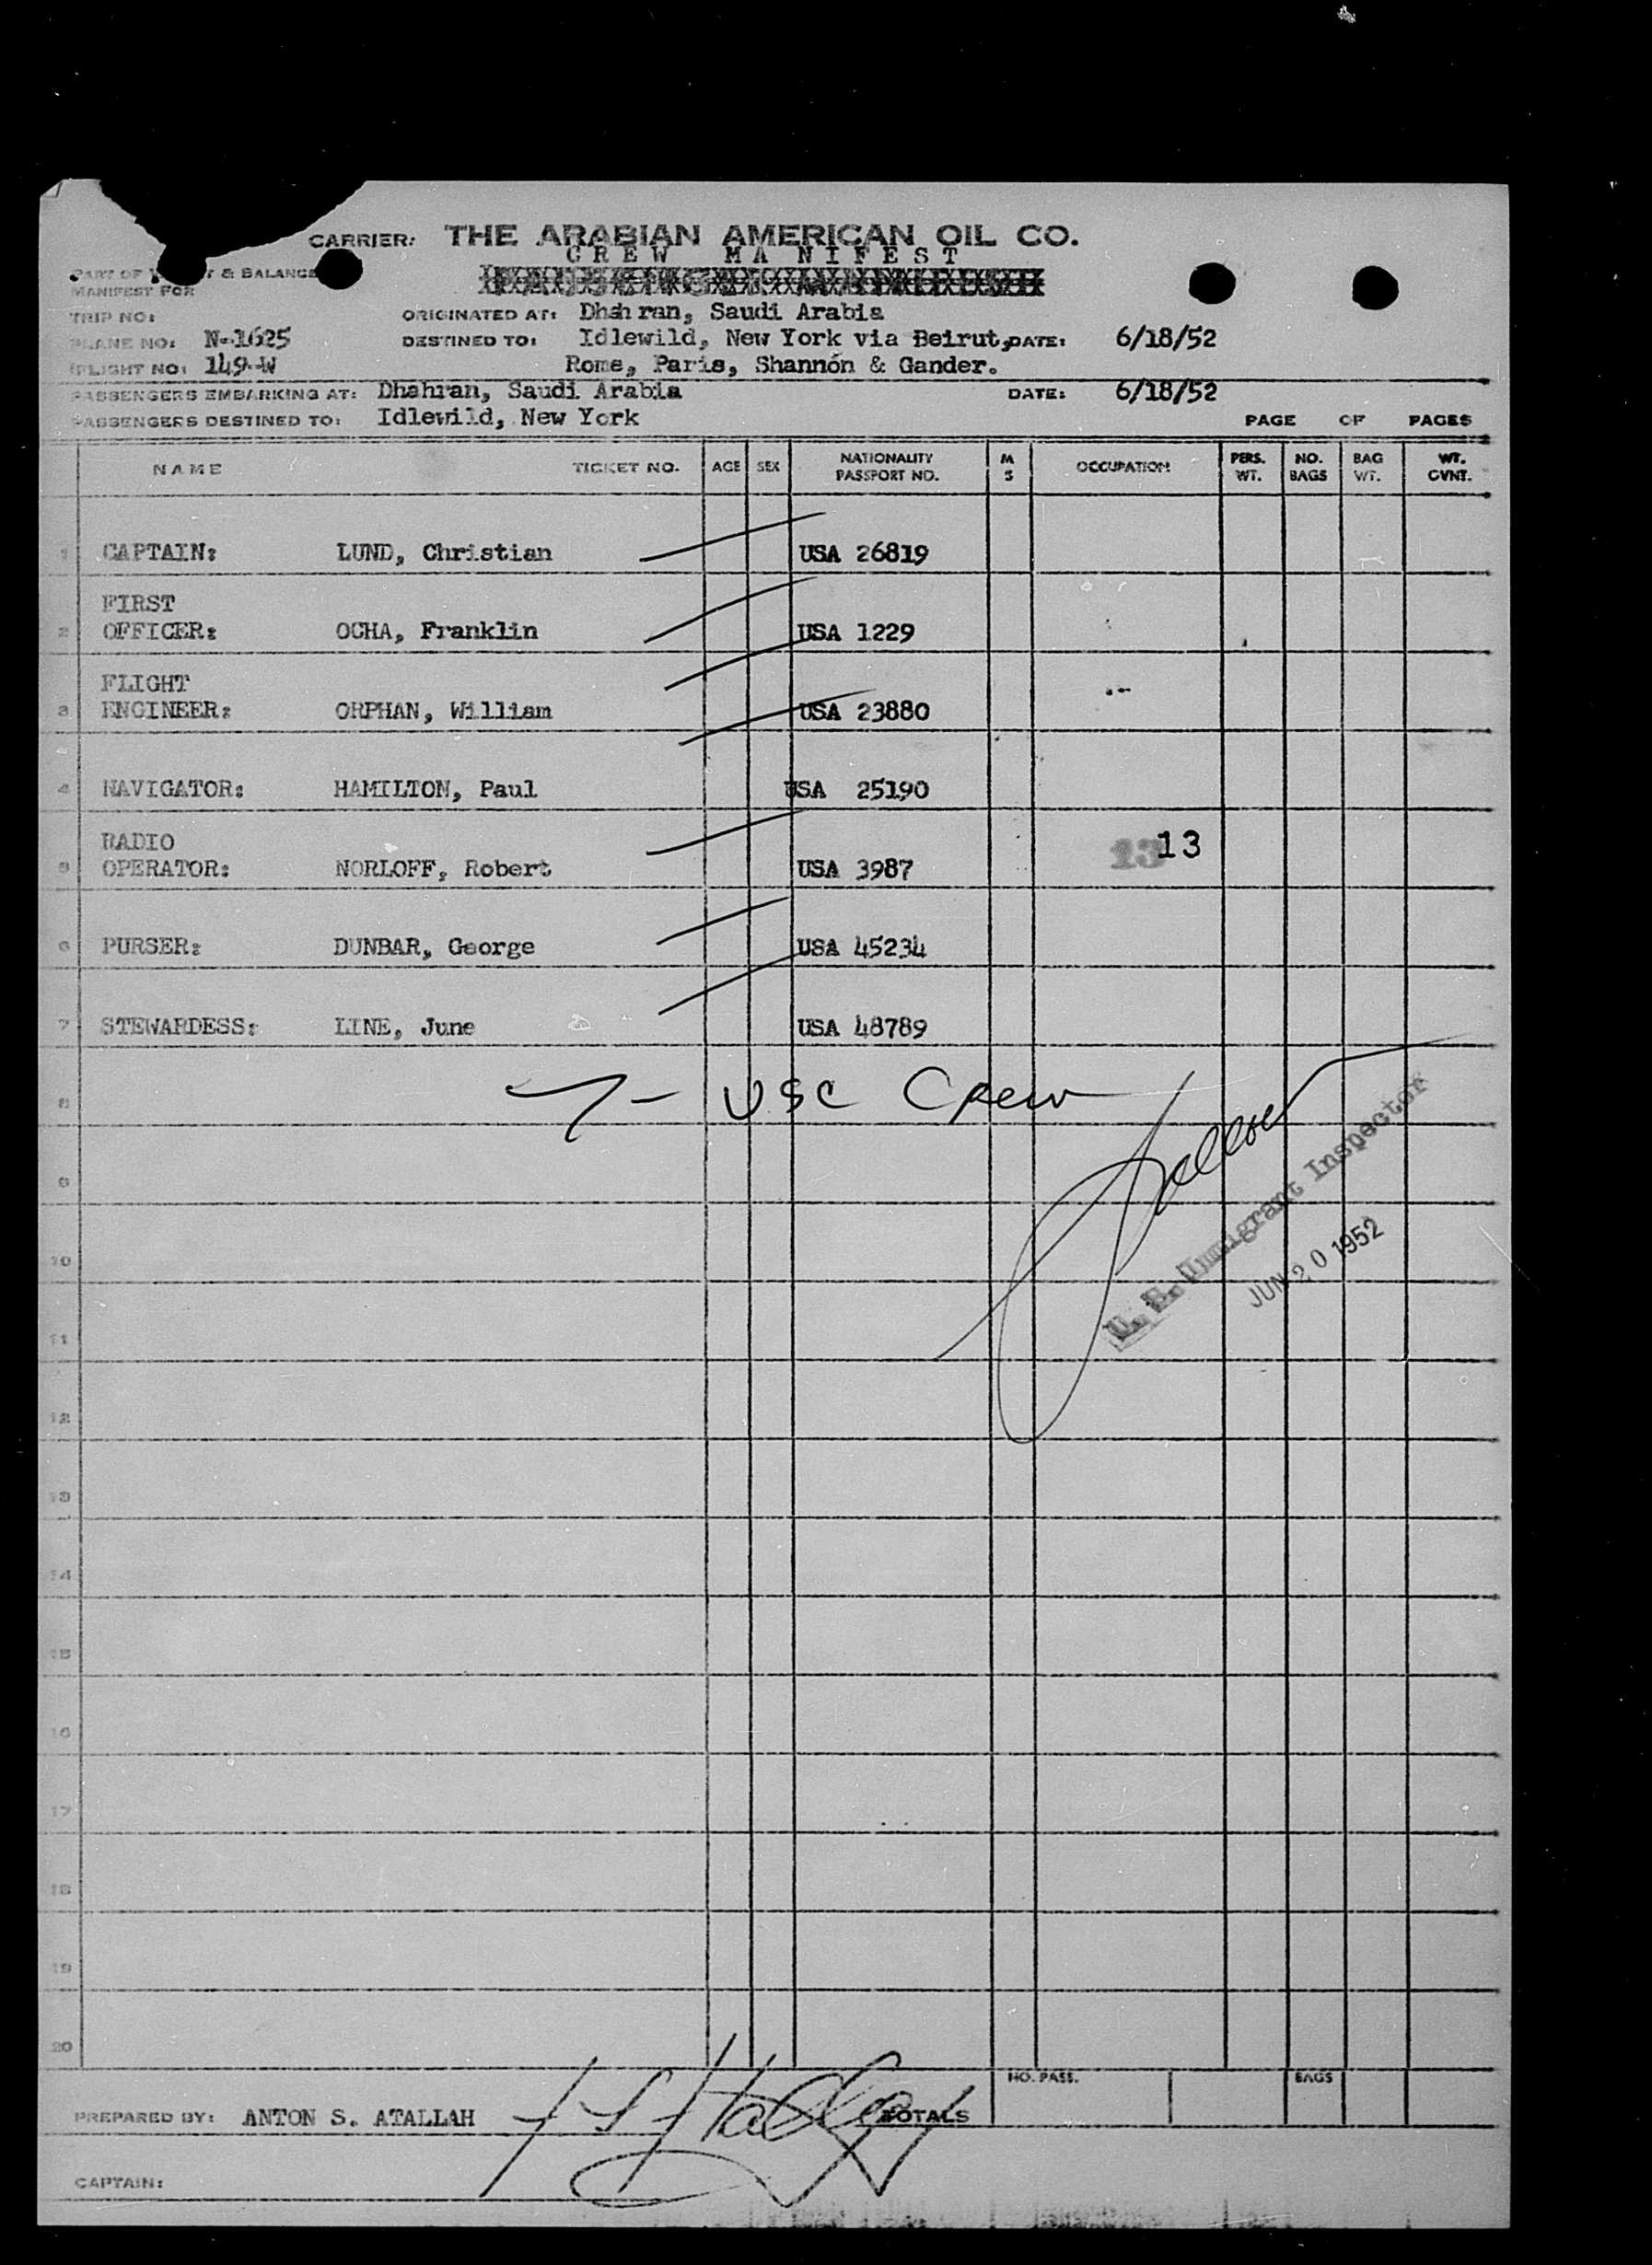 CARRIER: THE ARABIAN AMERICAN OIL CO.
CREW MANIFEST
PART OF & BALANCE
MANIFEST FOR
TRIP NO: ORIGINATED AT: Dhahran, Saudi Arabia
PLANE NO: N-1625 DESTINED TO: Idlewild, New York via Beirut, DATE: 6/18/52
FLIGHT NO: 149-W Rome, Paris, Shannon & Gander.
PASSENGERS EMBARKING AT: Dhahran, Saudi Arabia DATE: 6/18/52
PASSENGERS DESTINED TO: Idlewild, New York PAGE OF PAGES
NAME TICKET NO. AGE SEX NATIONALITY PASSPORT NO. M S OCCUPATION PERS. WT. NO. BAGS BAG WT. WT. CVNT.
1 CAPTAIN: LUND, Christian USA 26819
FIRST
2 OFFICER: OCHA, Franklin USA 1229
FLIGHT
3 ENGINEER: ORPHAN, William USA 23880
4 NAVIGATOR: HAMILTON, Paul USA 25190
RADIO 13 13
5 OPERATOR: NORLOFF, Robert USA 3987
6 PURSER: DUNBAR, George USA 45234
7 STEWARDESS: LINE, June USA 48789
8 7- USC Crew
9
U. S. Immigrant Inspector
10
JUN 20 1952
11
12
13
14
15
16
17
18
19
20
NO. PASS. BAGS
PREPARED BY: ANTON S. ATALLAH TOTALS
CAPTAIN: